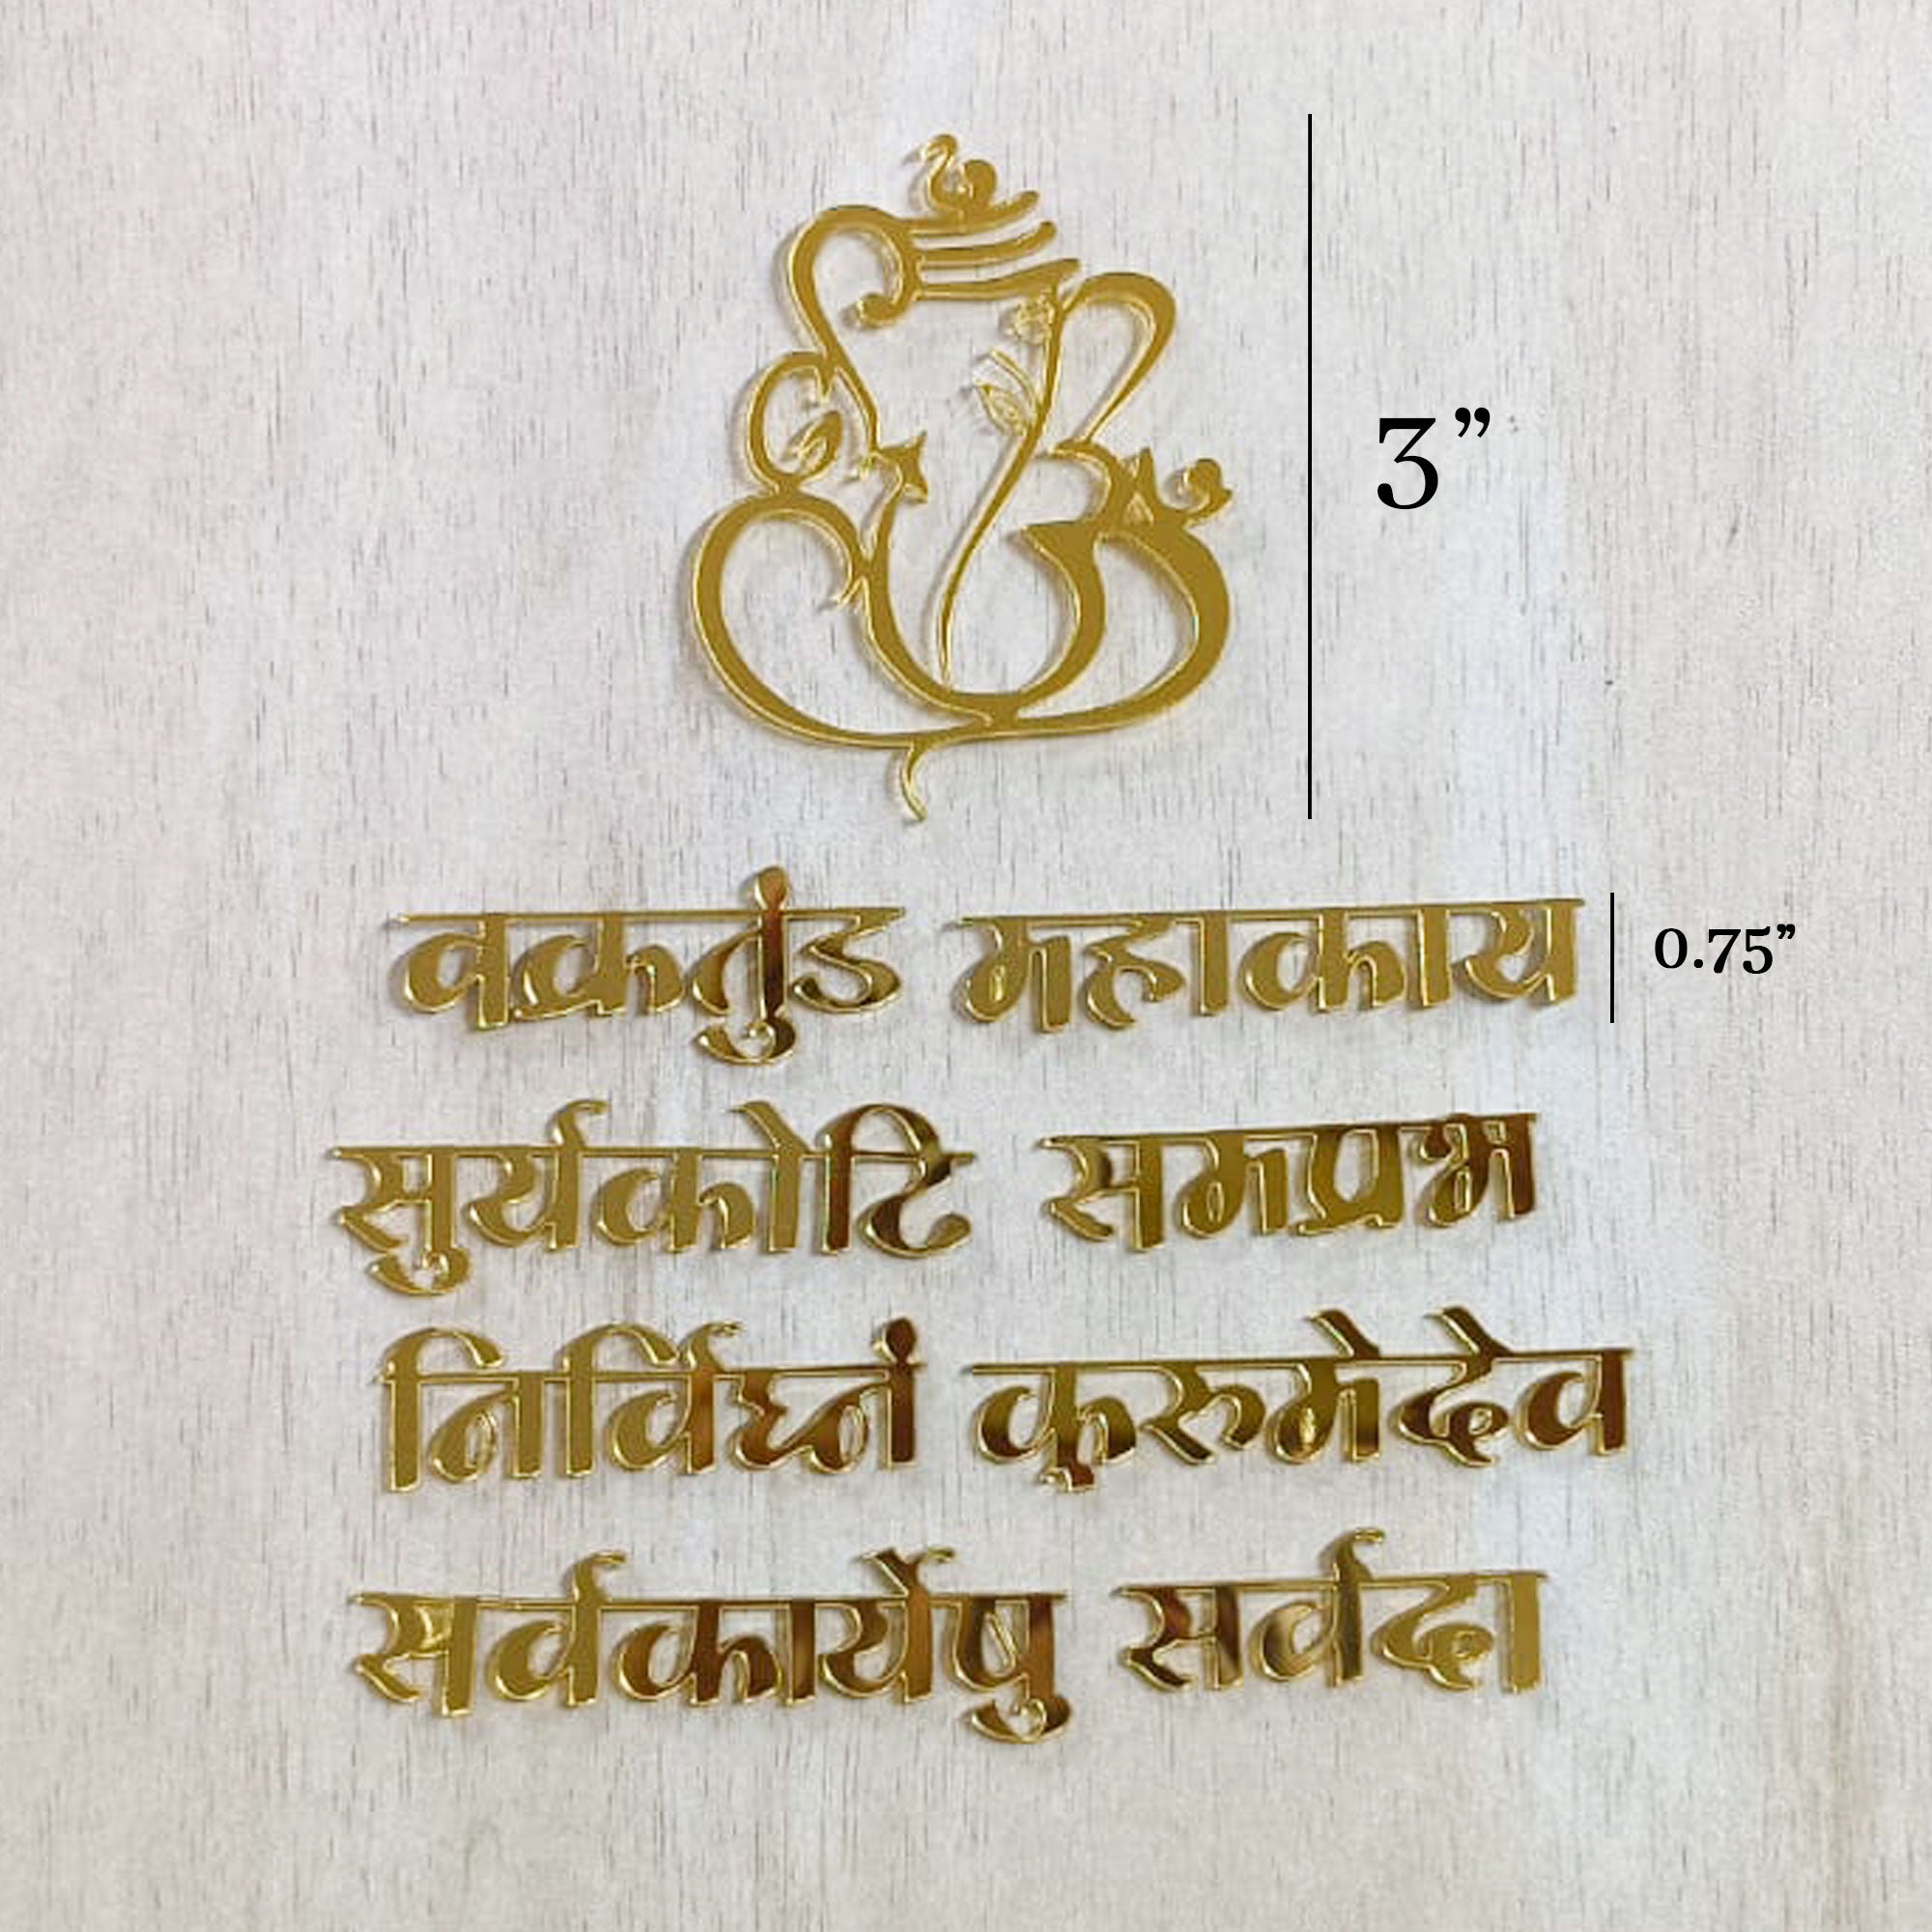 3”
वक्रतुंड महाकाय 0.75”
सुर्यकोटि समप्रभ
निर्विघ्नं कुरुमेदेव
सर्वकार्येषु सर्वदा